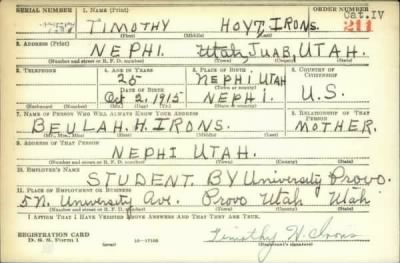 SERIAL NUMBER 1. NAME (Print) ORDER NUMBER
Cat. IV
TIMOTHY HOYT IRONS. 211
(First) (Middle) (Last)
2. ADDRESS (Print)
NEPHI. Utah, JUAB, UTAH.
(Number and street or R. F. D. number) (Town) (County) (State)
3. TELEPHONE 4. AGE IN YEARS 5. PLACE OF BIRTH 6. COUNTRY OF CITIZENSHIP
25 NEPHI UTAH
DATE OF BIRTH (Town or county)
Oct 2, 1915 NEPHI. U.S.
(Exchange) (Number) (Mo.) (Day) (Yr.) (State or country)
7. NAME OF PERSON WHO WILL ALWAYS KNOW YOUR ADDRESS 8. RELATIONSHIP OF THAT PERSON
BEULAH. H. IRONS. MOTHER.
(Mr., Mrs., Miss) (First) (Middle) (Last)
9. ADDRESS OF THAT PERSON
NEPHI UTAH.
(Number and street or R. F. D. number) (Town) (County) (State)
10. EMPLOYER'S NAME
STUDENT. B.Y University Provo.
11. PLACE OF EMPLOYMENT OR BUSINESS
5 N. University Ave. Provo Utah Utah
(Number and street or R. F. D. number) (Town) (County) (State)
I AFFIRM THAT I HAVE VERIFIED ABOVE ANSWERS AND THAT THEY ARE TRUE.
REGISTRATION CARD
D. S. S. Form 1 16-17105 Timothy H. Irons
(Registrant's signature)